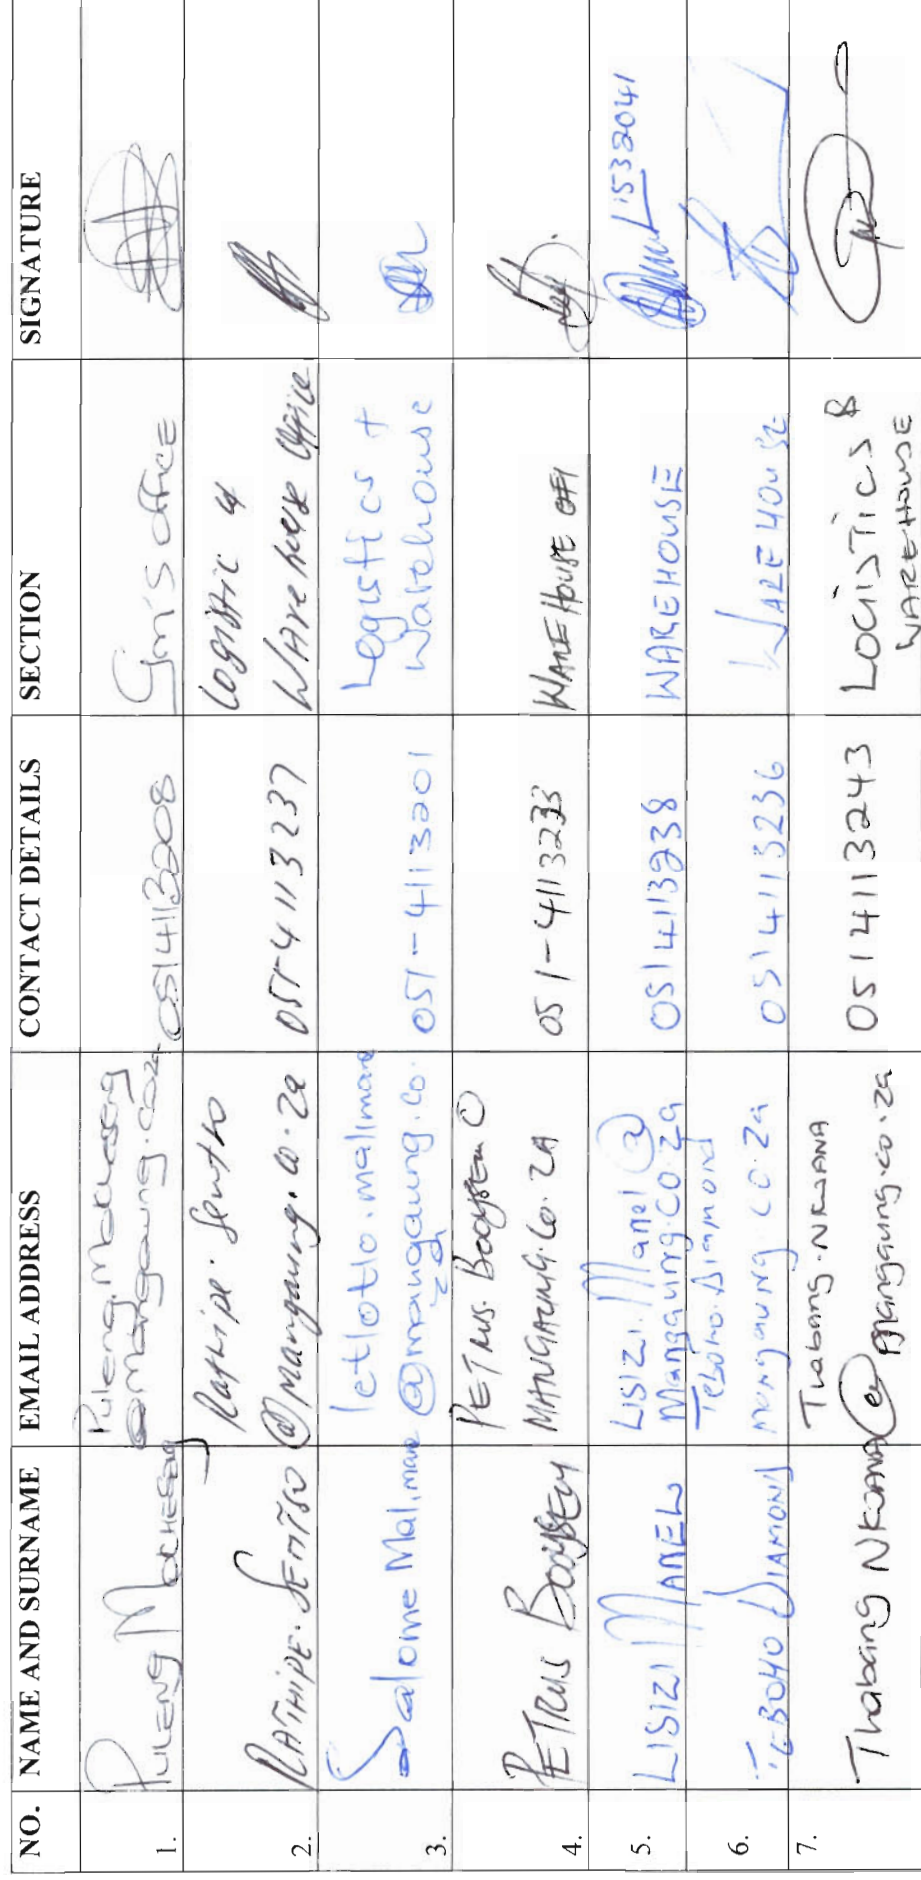 NO. NAME AND SURNAME EMAIL ADDRESS CONTACT DETAILS SECTION SIGNATURE
1. Puleng Mocheseng Puleng.Mocheseng
@mangaung.co.za 0514113208 Gm's office
2. Rathipe. Sentso Rathipe. Sentso
@mangaung.co.za 051-4113237 Logistic &
Warehouse Office
3. Salome Malimane letlotlo.malimane
@mangaung.co.
za 051-4113201 Logistics +
Warehouse
4. PETRUS BOOYSEN PETRUS.BOOYSEN@
MANGAUNG.CO.ZA 051-4113233 WAREHOUSE
5. LISIZI MANELI LISIZI.Maneli@
Mangaung.co.za 0514113238 WAREHOUSE L1532041
6. TEBOHO DIAMOND Teboho.Diamond
mangaung.co.za 0514113236 WAREHOUSE
7. Thabang NKWANA Thabang.NKWANA
@mangaung.co.za 0514113243 LOGISTICS &
WAREHOUSE